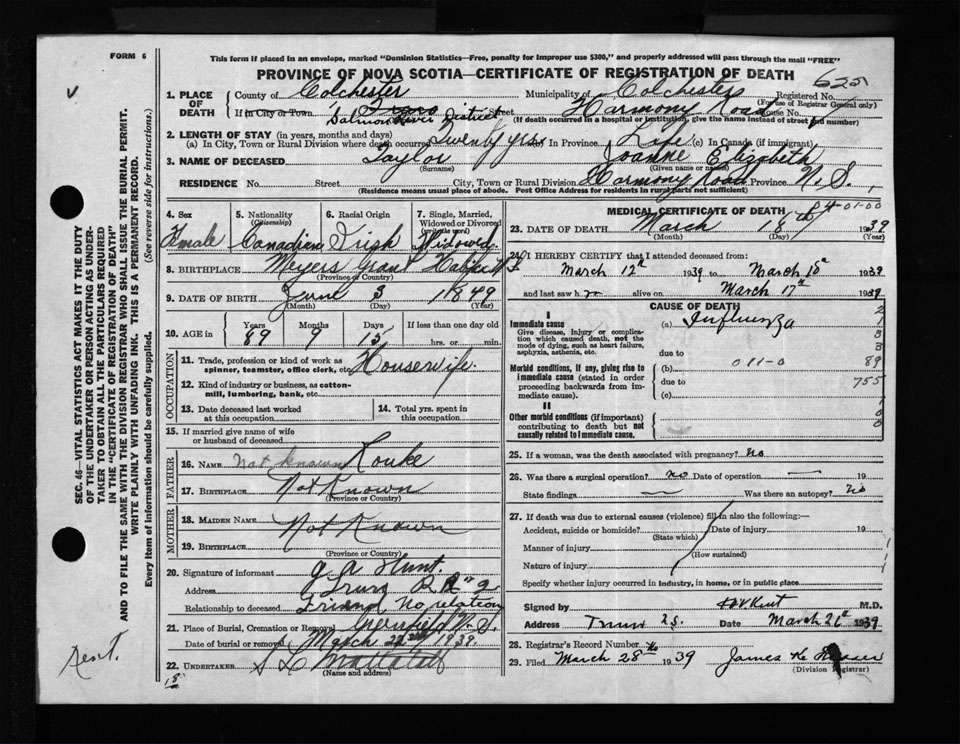 FORM 6
This form if placed in an envelope, marked "Dominion Statistics—Free, penalty for improper use $300," and properly addressed will pass through the mail "FREE"
PROVINCE OF NOVA SCOTIA—CERTIFICATE OF REGISTRATION OF DEATH
1. PLACE OF DEATH
County of Colchester Municipality of Colchester Registered No.
(For use of Registrar General only)
If in City or Town Truro Street Harmony Road House No.
Salmon River District
(If death occurred in a hospital or institution, give the name instead of street and number)
2. LENGTH OF STAY (in years, months and days)
(a) In City, Town or Rural Division where death occurred Twenty yrs In Province Life (c) In Canada (if immigrant)
3. NAME OF DECEASED Taylor Joanne Elizabeth
(Surname) (Given name or names)
RESIDENCE No. Street City, Town or Rural Division Harmony Road Province N.S.
(Residence means usual place of abode. Post Office Address for residents in rural parts not sufficient)
4. Sex 5. Nationality (Citizenship) 6. Racial Origin 7. Single, Married, Widowed or Divorced (write the word)
Female Canadian Irish Widowed
8. BIRTHPLACE Meyers Grant Halifax
(Province or Country)
9. DATE OF BIRTH June 3 1849
(Month) (Day) (Year)
10. AGE in Years Months Days If less than one day old
89 9 15 hrs. or min.
OCCUPATION
11. Trade, profession or kind of work as spinner, teamster, office clerk, etc. Housewife
12. Kind of industry or business, as cotton-mill, lumbering, bank, etc.
13. Date deceased last worked at this occupation
14. Total yrs. spent in this occupation
15. If married give name of wife or husband of deceased
FATHER
16. NAME Not known Rouke
17. BIRTHPLACE Not Known
(Province or Country)
MOTHER
18. MAIDEN NAME Not Known
19. BIRTHPLACE
(Province or Country)
20. Signature of informant G A Hunt.
Address Truro R R # 2
Relationship to deceased Friend No relation
21. Place of Burial, Cremation or Removal Greenfield N.S.
Date of burial or removal March 1939
22. UNDERTAKER
(Name and address)
MEDICAL CERTIFICATE OF DEATH
23. DATE OF DEATH March 18th 1939
(Month) (Day) (Year)
24. I HEREBY CERTIFY that I attended deceased from:
March 12th 1939 to March 18th 1939
and last saw h r alive on March 17th 1939
CAUSE OF DEATH
I
Immediate cause
Give disease, injury or complication which caused death, not the mode of dying, such as heart failure, asphyxia, asthenia, etc.
(a) Influenza
due to
Morbid conditions, if any, giving rise to immediate cause (stated in order proceeding backwards from immediate cause).
(b) 011-0 89
due to 755
(c)
II
Other morbid conditions (if important) contributing to death but not causally related to immediate cause.
25. If a woman, was the death associated with pregnancy? no
26. Was there a surgical operation? no Date of operation — 19
State findings — Was there an autopsy? No
27. If death was due to external causes (violence) fill in also the following:—
Accident, suicide or homicide? Date of injury 19
(State which)
Manner of injury
(How sustained)
Nature of injury
Specify whether injury occurred in industry, in home, or in public place
Signed by Kent M.D.
Address Truro N.S. Date March 26th 1939
28. Registrar's Record Number
29. Filed March 28th 1939 James K.
(Division Registrar)
SEC. 46—VITAL STATISTICS ACT MAKES IT THE DUTY
OF THE UNDERTAKER OR PERSON ACTING AS UNDERTAKER
TO OBTAIN ALL THE PARTICULARS REQUIRED
IN THE "CERTIFICATE OF REGISTRATION OF DEATH"
AND TO FILE THE SAME WITH THE DIVISION REGISTRAR WHO SHALL ISSUE THE BURIAL PERMIT.
WRITE PLAINLY WITH UNFADING INK. THIS IS A PERMANENT RECORD.
Every item of information should be carefully supplied. (See reverse side for instructions.)
Kent.